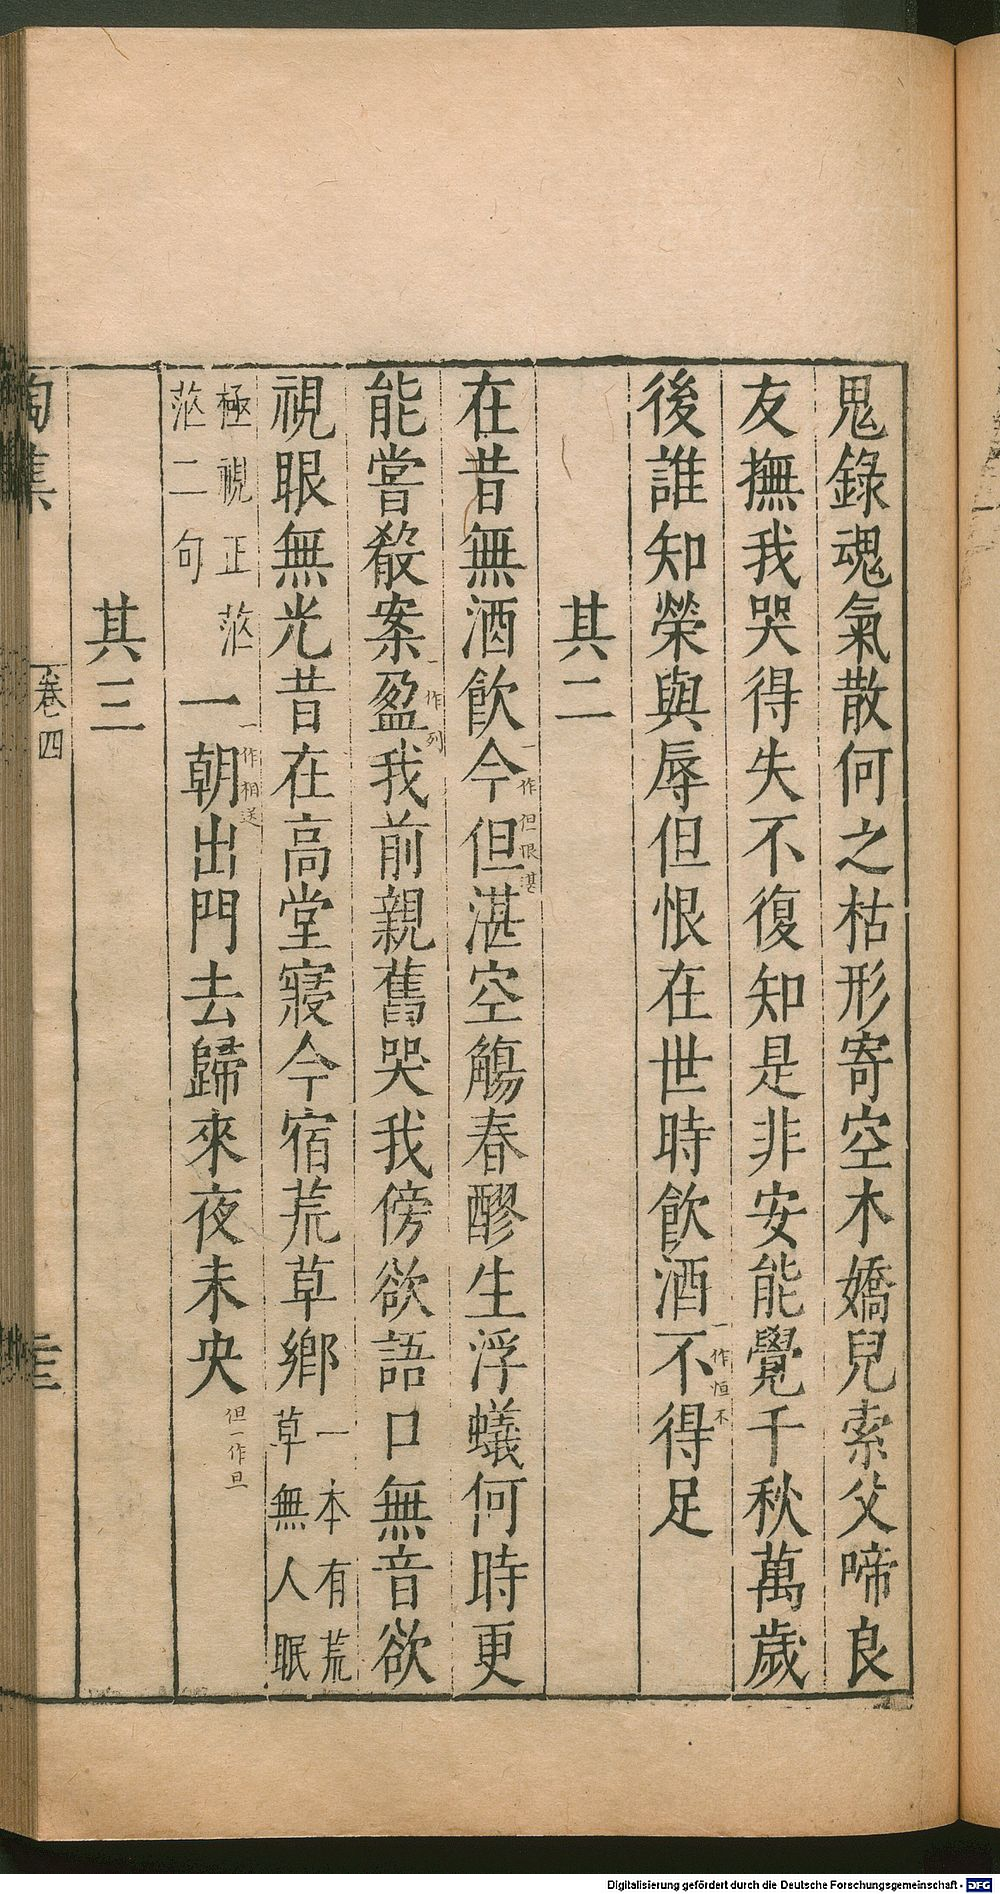 鬼錄魂氣散何之枯形寄空木嬌兒索父啼良
友撫我哭得失不復知是非安能覺千秋萬歲
後誰知榮與辱但恨在世時飲酒不一作恒不得足
其二
在昔無酒飲今一作但恨湛但湛空觴春醪生浮蟻何時更
能嘗殽案盈一作列我前親舊哭我傍欲語口無音欲
視眼無光昔在高堂寢今宿荒草鄉一本有荒草無人眠
極視正茫茫二句一一作相送朝出門去歸來夜未央但一作旦
其三
陶集
卷四
Digitalisierung gefördert durch die Deutsche Forschungsgemeinschaft - DFG